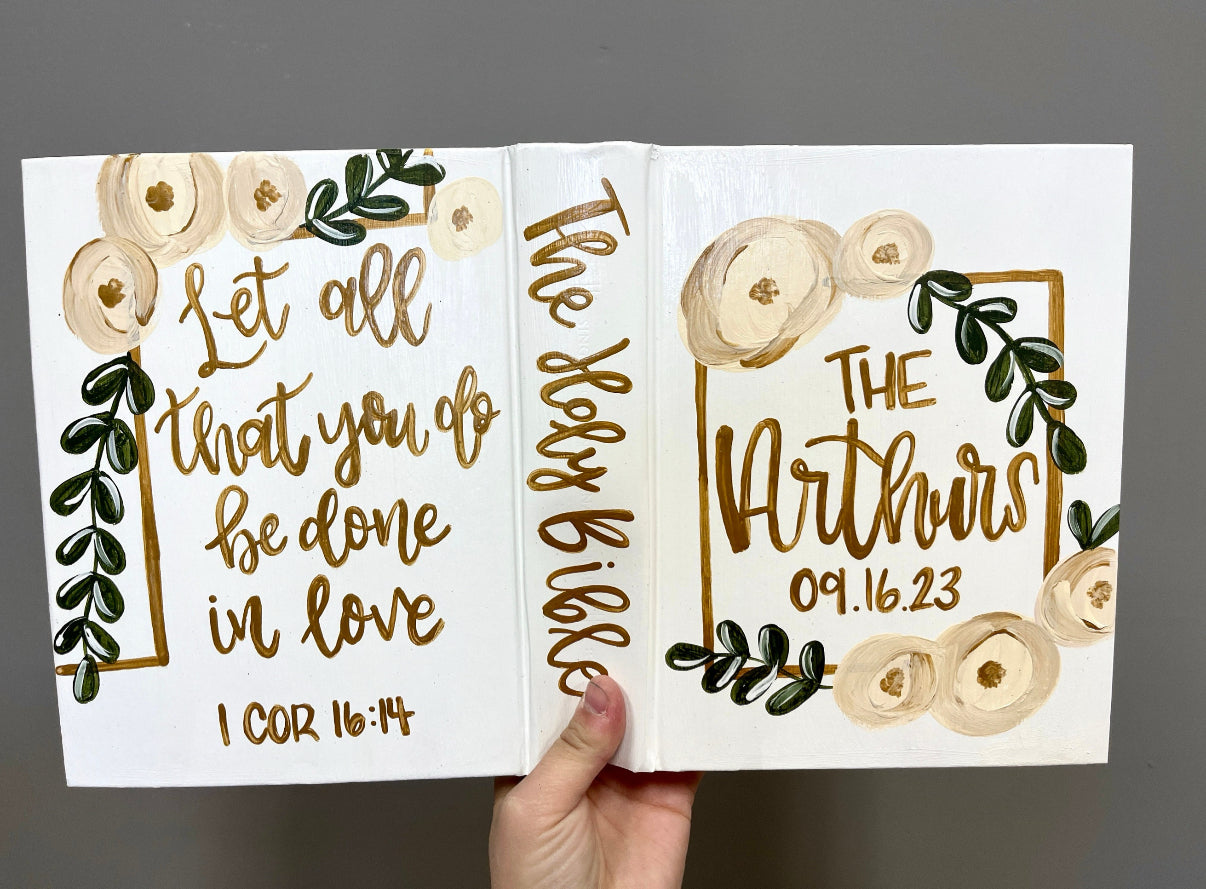 Let all
that you do
be done
in love
1 COR 16:14
The Holy Bible
THE
Arthurs
09.16.23